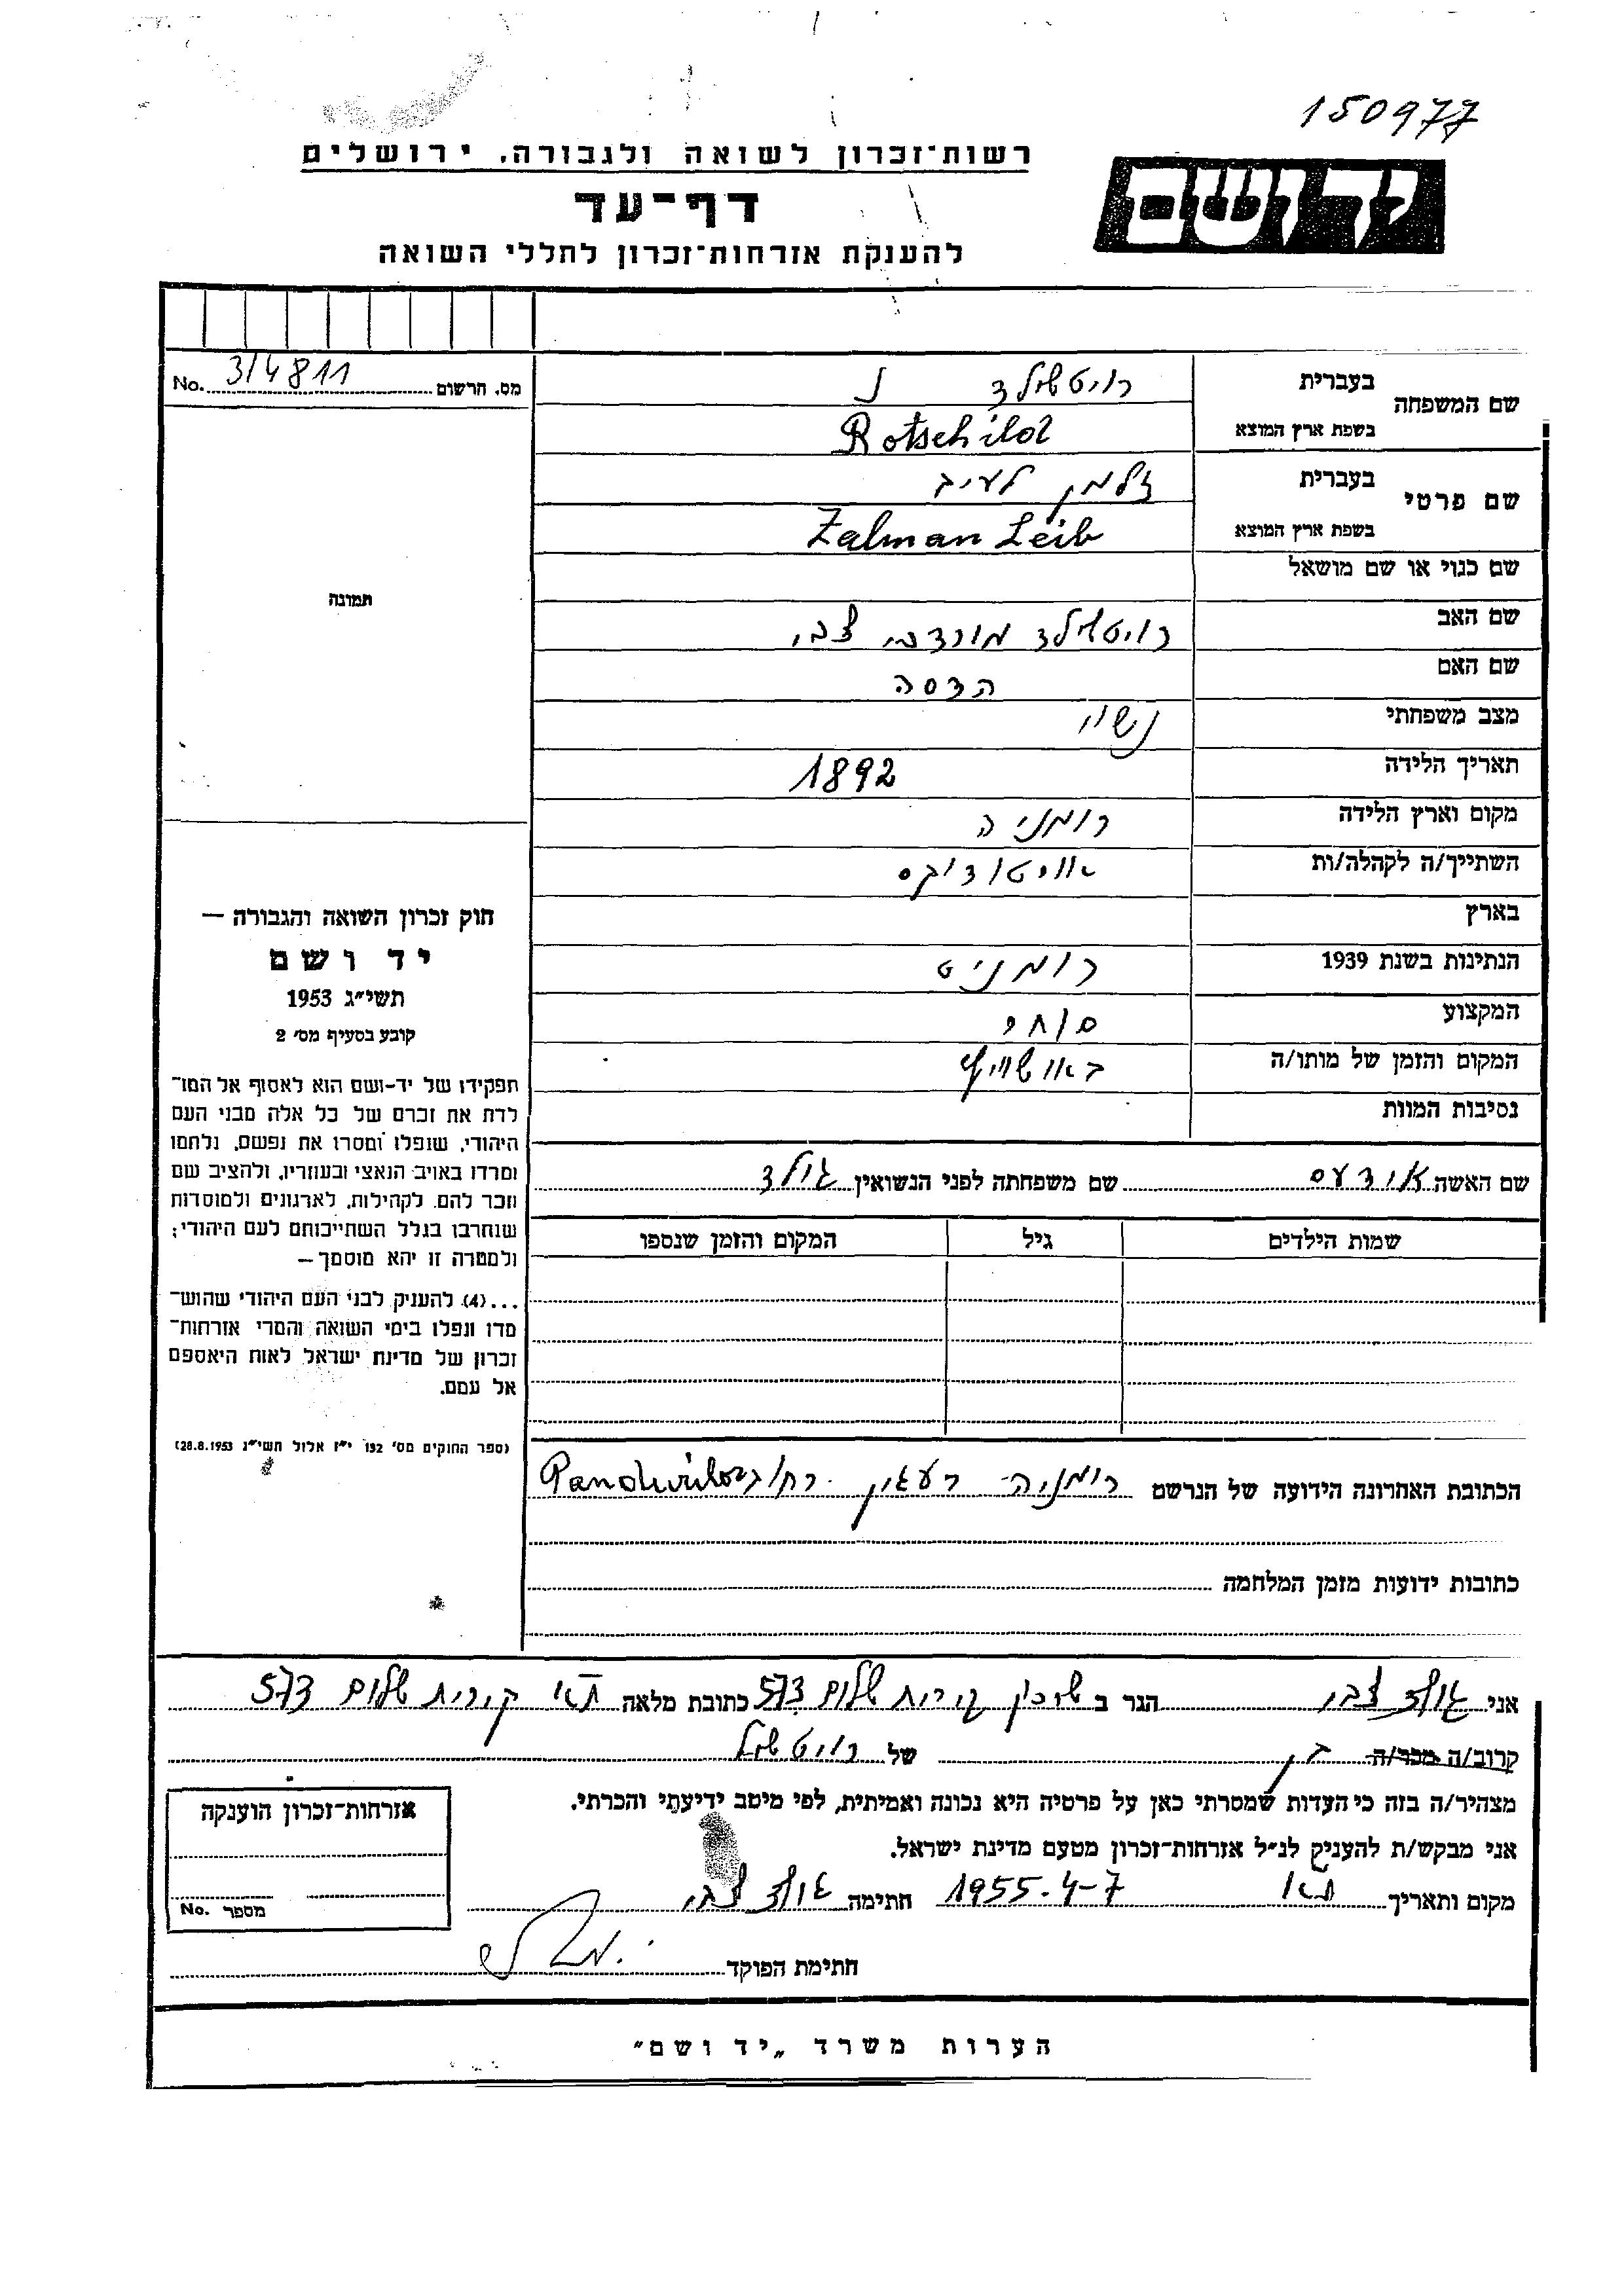 150977
רשות־זכרון לשואה ולגבורה, ירושלים
יד ושם
דף־עד
להענקת אזרחות־זכרון לחללי השואה
מס. הרשום 314811 No.
שם המשפחה בעברית רויטשילד נ
בשפת ארץ המוצא Rotschild
שם פרטי בעברית זלמן לעיב
בשפת ארץ המוצא Zalman Leib
שם כנוי או שם מושאל
תמונה
שם האב רויטשילד מורדכי צבי
שם האם הדסה
מצב משפחתי נשוי
תאריך הלידה 1892
מקום וארץ הלידה רומניה
השתייך/ה לקהלה/ות
בארץ
הנתינות בשנת 1939 רומניט
המקצוע סוחר
המקום והזמן של מותו/ה באושוויץ
נסיבות המוות
חוק זכרון השואה והגבורה —
יד ושם
תשי״ג 1953
קובע בסעיף מס׳ 2
תפקידו של יד-ושם הוא לאסוף אל המו־
לדת את זכרם של כל אלה מבני העם
היהודי, שנפלו ומסרו את נפשם, נלחמו
ומרדו באויב הנאצי ובעוזריו, ולהציב שם
וזכר להם, לקהילות, לארגונים ולמוסדות
שנחרבו בגלל השתייכותם לעם היהודי;
ולמטרה זו יהא מוסמך —
...(4) להעניק לבני העם היהודי שהוש־
מדו ונפלו בימי השואה והמרי אזרחות־
זכרון של מדינת ישראל לאות היאספם
אל עמם.
(ספר החוקים מס׳ 132 י״ז אלול תשי״ג 28.8.1953)
שם האשה אידעס שם משפחתה לפני הנשואין גולד
שמות הילדים גיל המקום והזמן שנספו
הכתובת האחרונה הידועה של הנרשם רומניה רעגין רח/
כתובות ידועות מזמן המלחמה
אני גולד צבי הגר ב שיכון קירית שלום 573 כתובת מלאה ת״א קירית שלום 573
קרוב/ה מכר/ה בן של רויטשילד
מצהיר/ה בזה כי העדות שמסרתי כאן על פרטיה היא נכונה ואמיתית, לפי מיטב ידיעתי והכרתי.
אני מבקש/ת להעניק לנ״ל אזרחות־זכרון מטעם מדינת ישראל.
מקום ותאריך ת״א 1955-4-7 חתימה גולד צבי
חתימת הפוקד
אזרחות־זכרון הוענקה
מספר No.
הערות משרד „יד ושם״